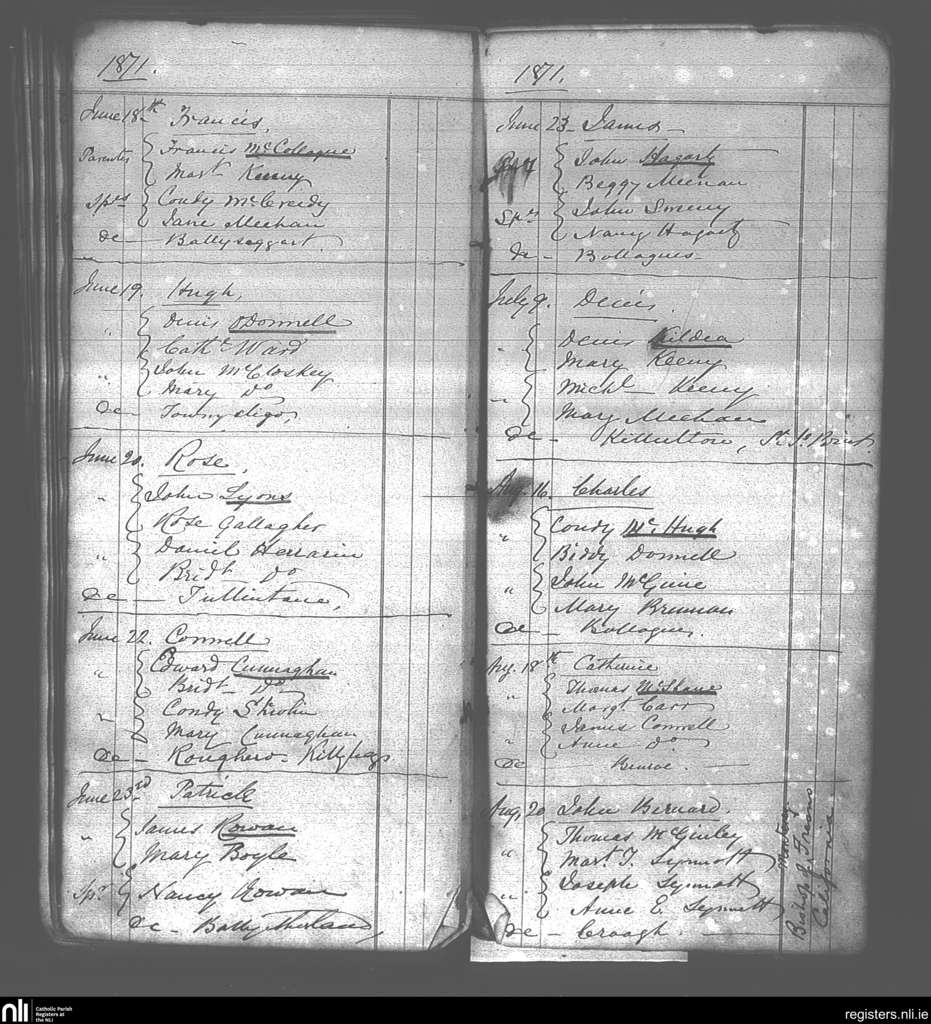 1871.
June 18th Francis,
Parentes Francis McCollogue
Mart Keeny
Sprs Condy McCreedy
Jane Meehan
de — Ballysaggart.
June 19. Hugh,
" Denis O'Donnell
Cathe Ward
" John McCloskey
Mary Do
de — Townydligo,
June 20. Rose,
" John Lyons
Rose Gallagher
" Daniel Herrarin
Bridt Do
de — Tullintane,
June 22. Connell
" Edward Cunnaghan
Bridt Do
" Condy
Mary Cunnaghan
de — Roughero - Killybegs
June 23rd Patrick
" James Rowan
Mary Boyle
Spr Nancy Rowan
de —
1871.
June 23 - James -
John Hagarty
Beggy Meenan
Sprs John Sweeny
Nancy Hagarty
de — Bollogues -
July 9. Denis.
" Denis Kildea
Mary Keeny
" Michl — Keeny
Mary Meehan
de — Killultore, St Js Point
Aug. 16. Charles
" Condy McHugh
Biddy Donnell
" John McGuire
Mary Brennan
de — Bollogues.
Aug. 18th Catherine
" Thomas McShane
Margt Carr
" James Connell
Anne Do
de Benroe. —
Aug. 20 John Bernard.
" Thomas McGinley
Mart. T. Synnott
" Joseph Synnott
Anne E. Synnott
de — Croagh. —
Monterey
California
nli
Catholic Parish
Registers at
the NLI
registers.nli.ie